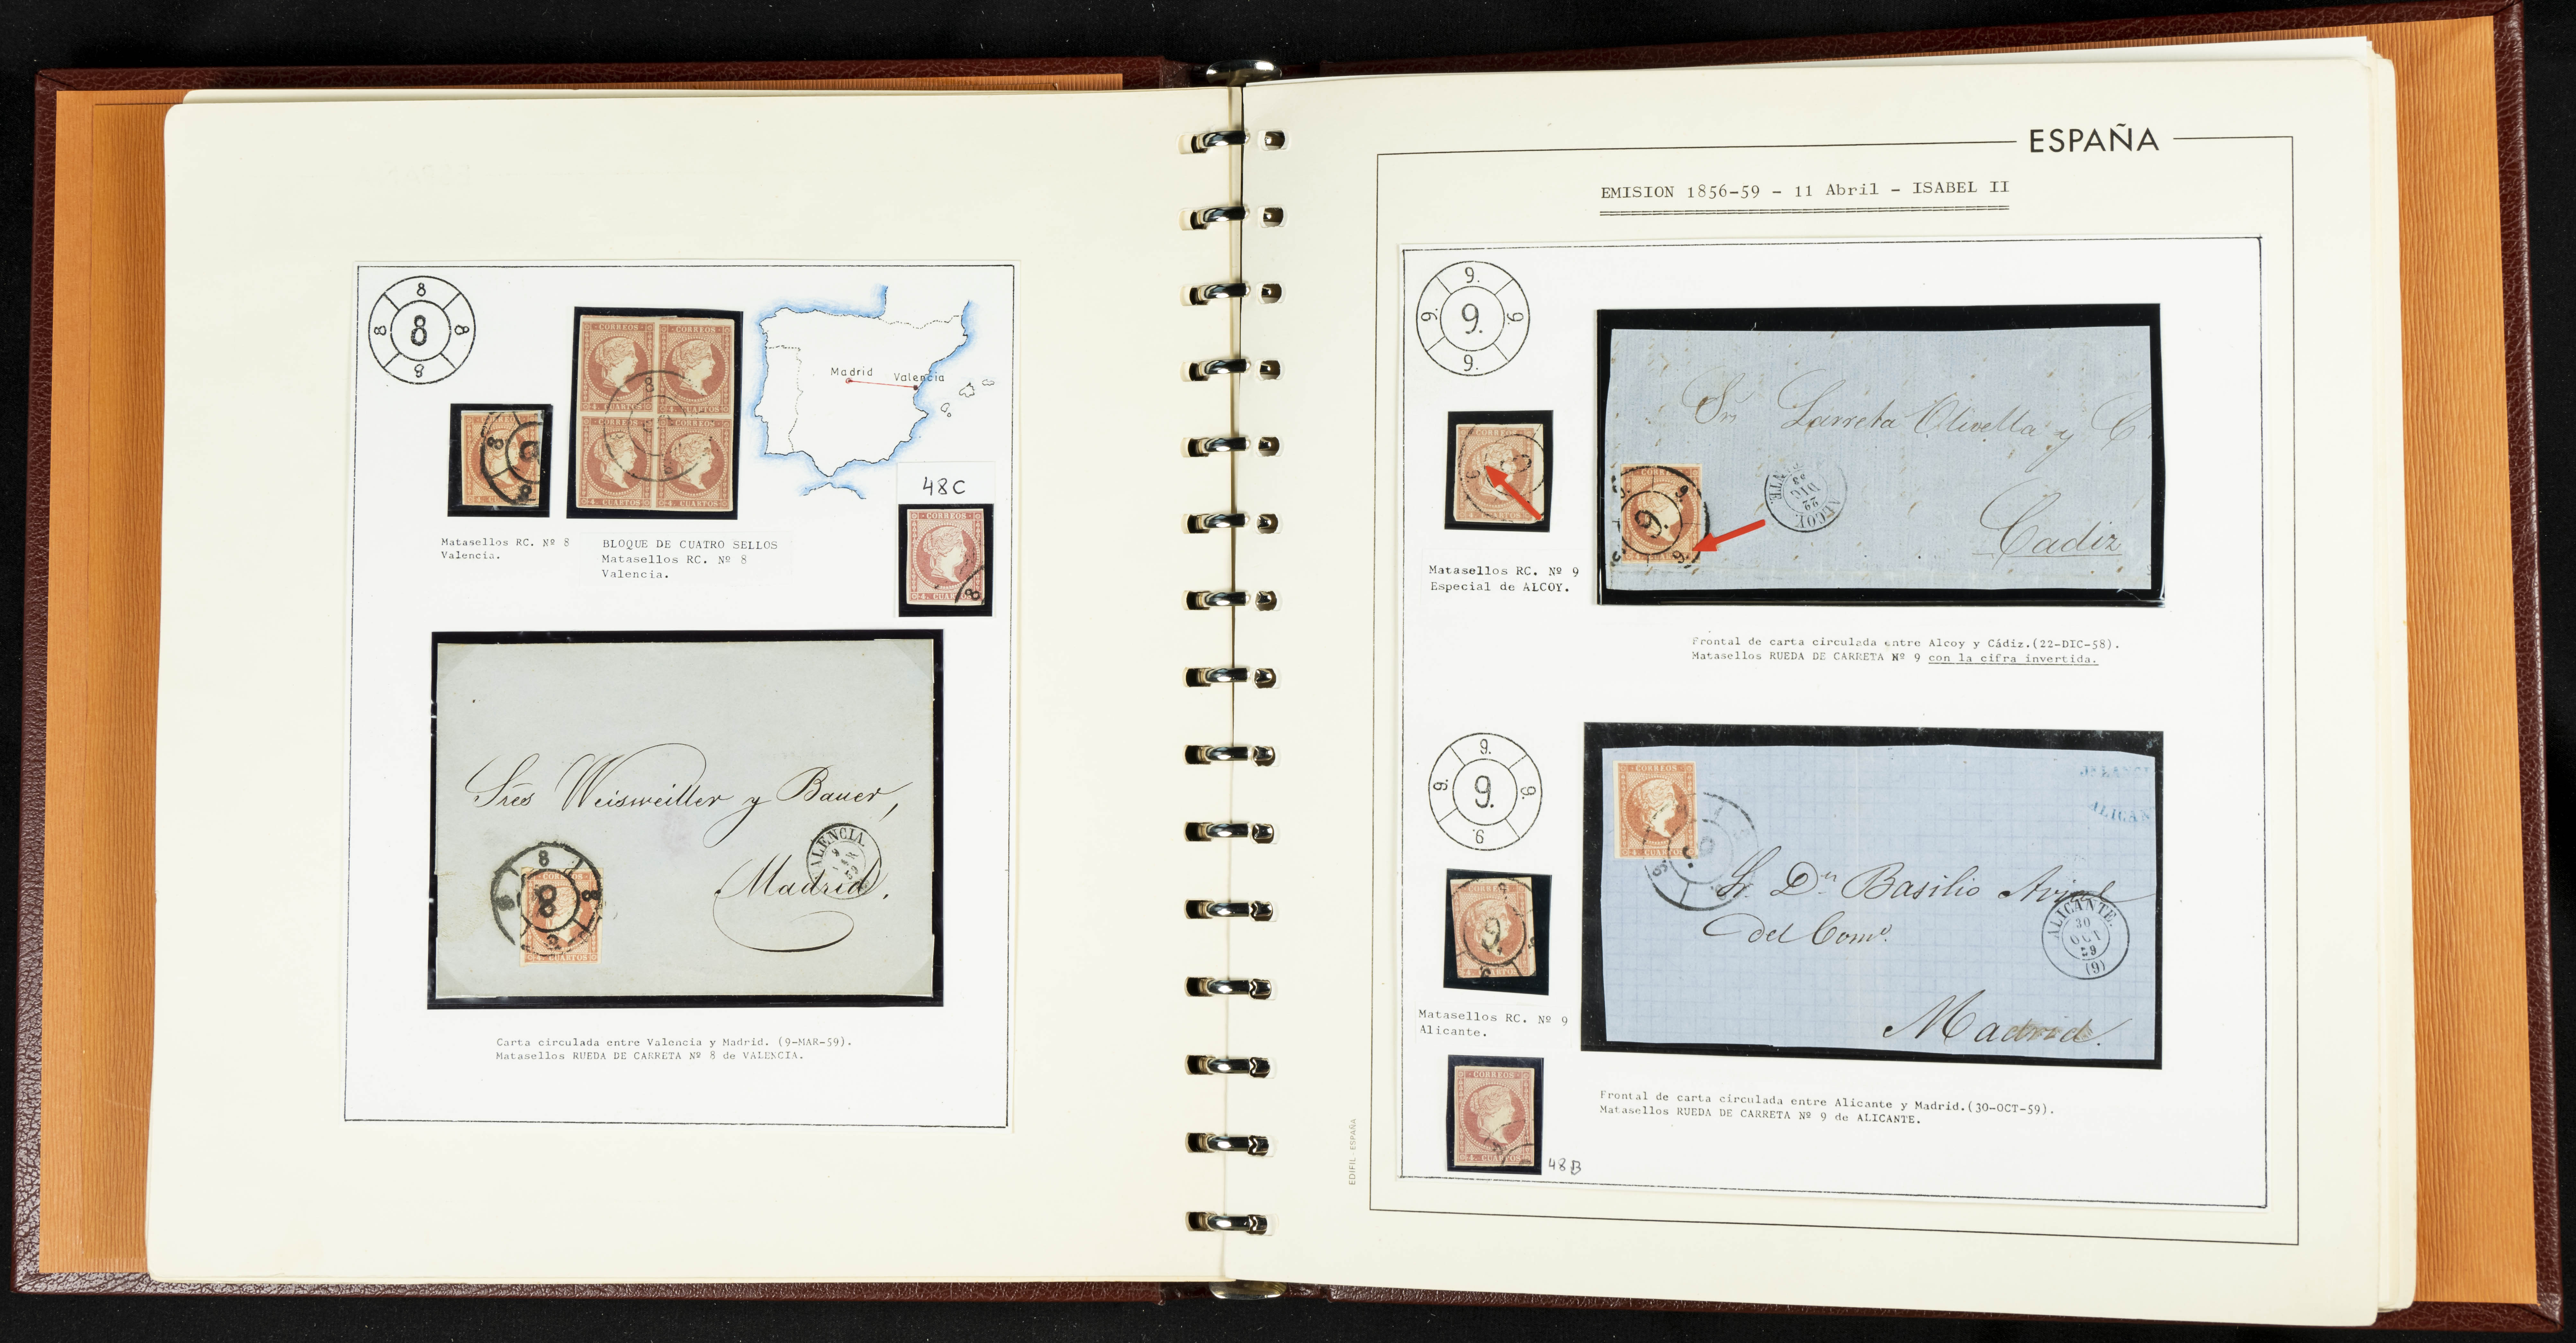 8
8 8 8
8
Madrid Valencia
CORREOS CORREOS
4. CUARTOS 4. CUARTOS
CORREOS CORREOS
4. CUARTOS 4. CUARTOS
48C
Matasellos RC. Nº 8
Valencia.
BLOQUE DE CUATRO SELLOS
Matasellos RC. Nº 8
Valencia.
CORREOS
Sres Weisweiller y Bauer,
Madrid.
VALENCIA.
8
CORREOS
CUARTOS
Carta circulada entre Valencia y Madrid. (9-MAR-59).
Matasellos RUEDA DE CARRETA Nº 8 de VALENCIA.
ESPAÑA
EMISION 1856-59 - 11 Abril - ISABEL II
9.
9. 9. 9.
9.
Matasellos RC. Nº 9
Especial de ALCOY.
Sres Larreta Olivella y C.
Cadiz
9.
ALCOY
22
DIC
Frontal de carta circulada entre Alcoy y Cádiz.(22-DIC-58).
Matasellos RUEDA DE CARRETA Nº 9 con la cifra invertida.
9.
9. 9. 9.
9.
CORREOS
4. CUARTOS
Sr Dn Basilio
del Como.
Madrid.
ALICANTE.
30
OCT
59
(9)
Matasellos RC. Nº 9
Alicante.
CORREOS
4. CUARTOS
48B
Frontal de carta circulada entre Alicante y Madrid.(30-OCT-59).
Matasellos RUEDA DE CARRETA Nº 9 de ALICANTE.
EDIFIL - ESPAÑA